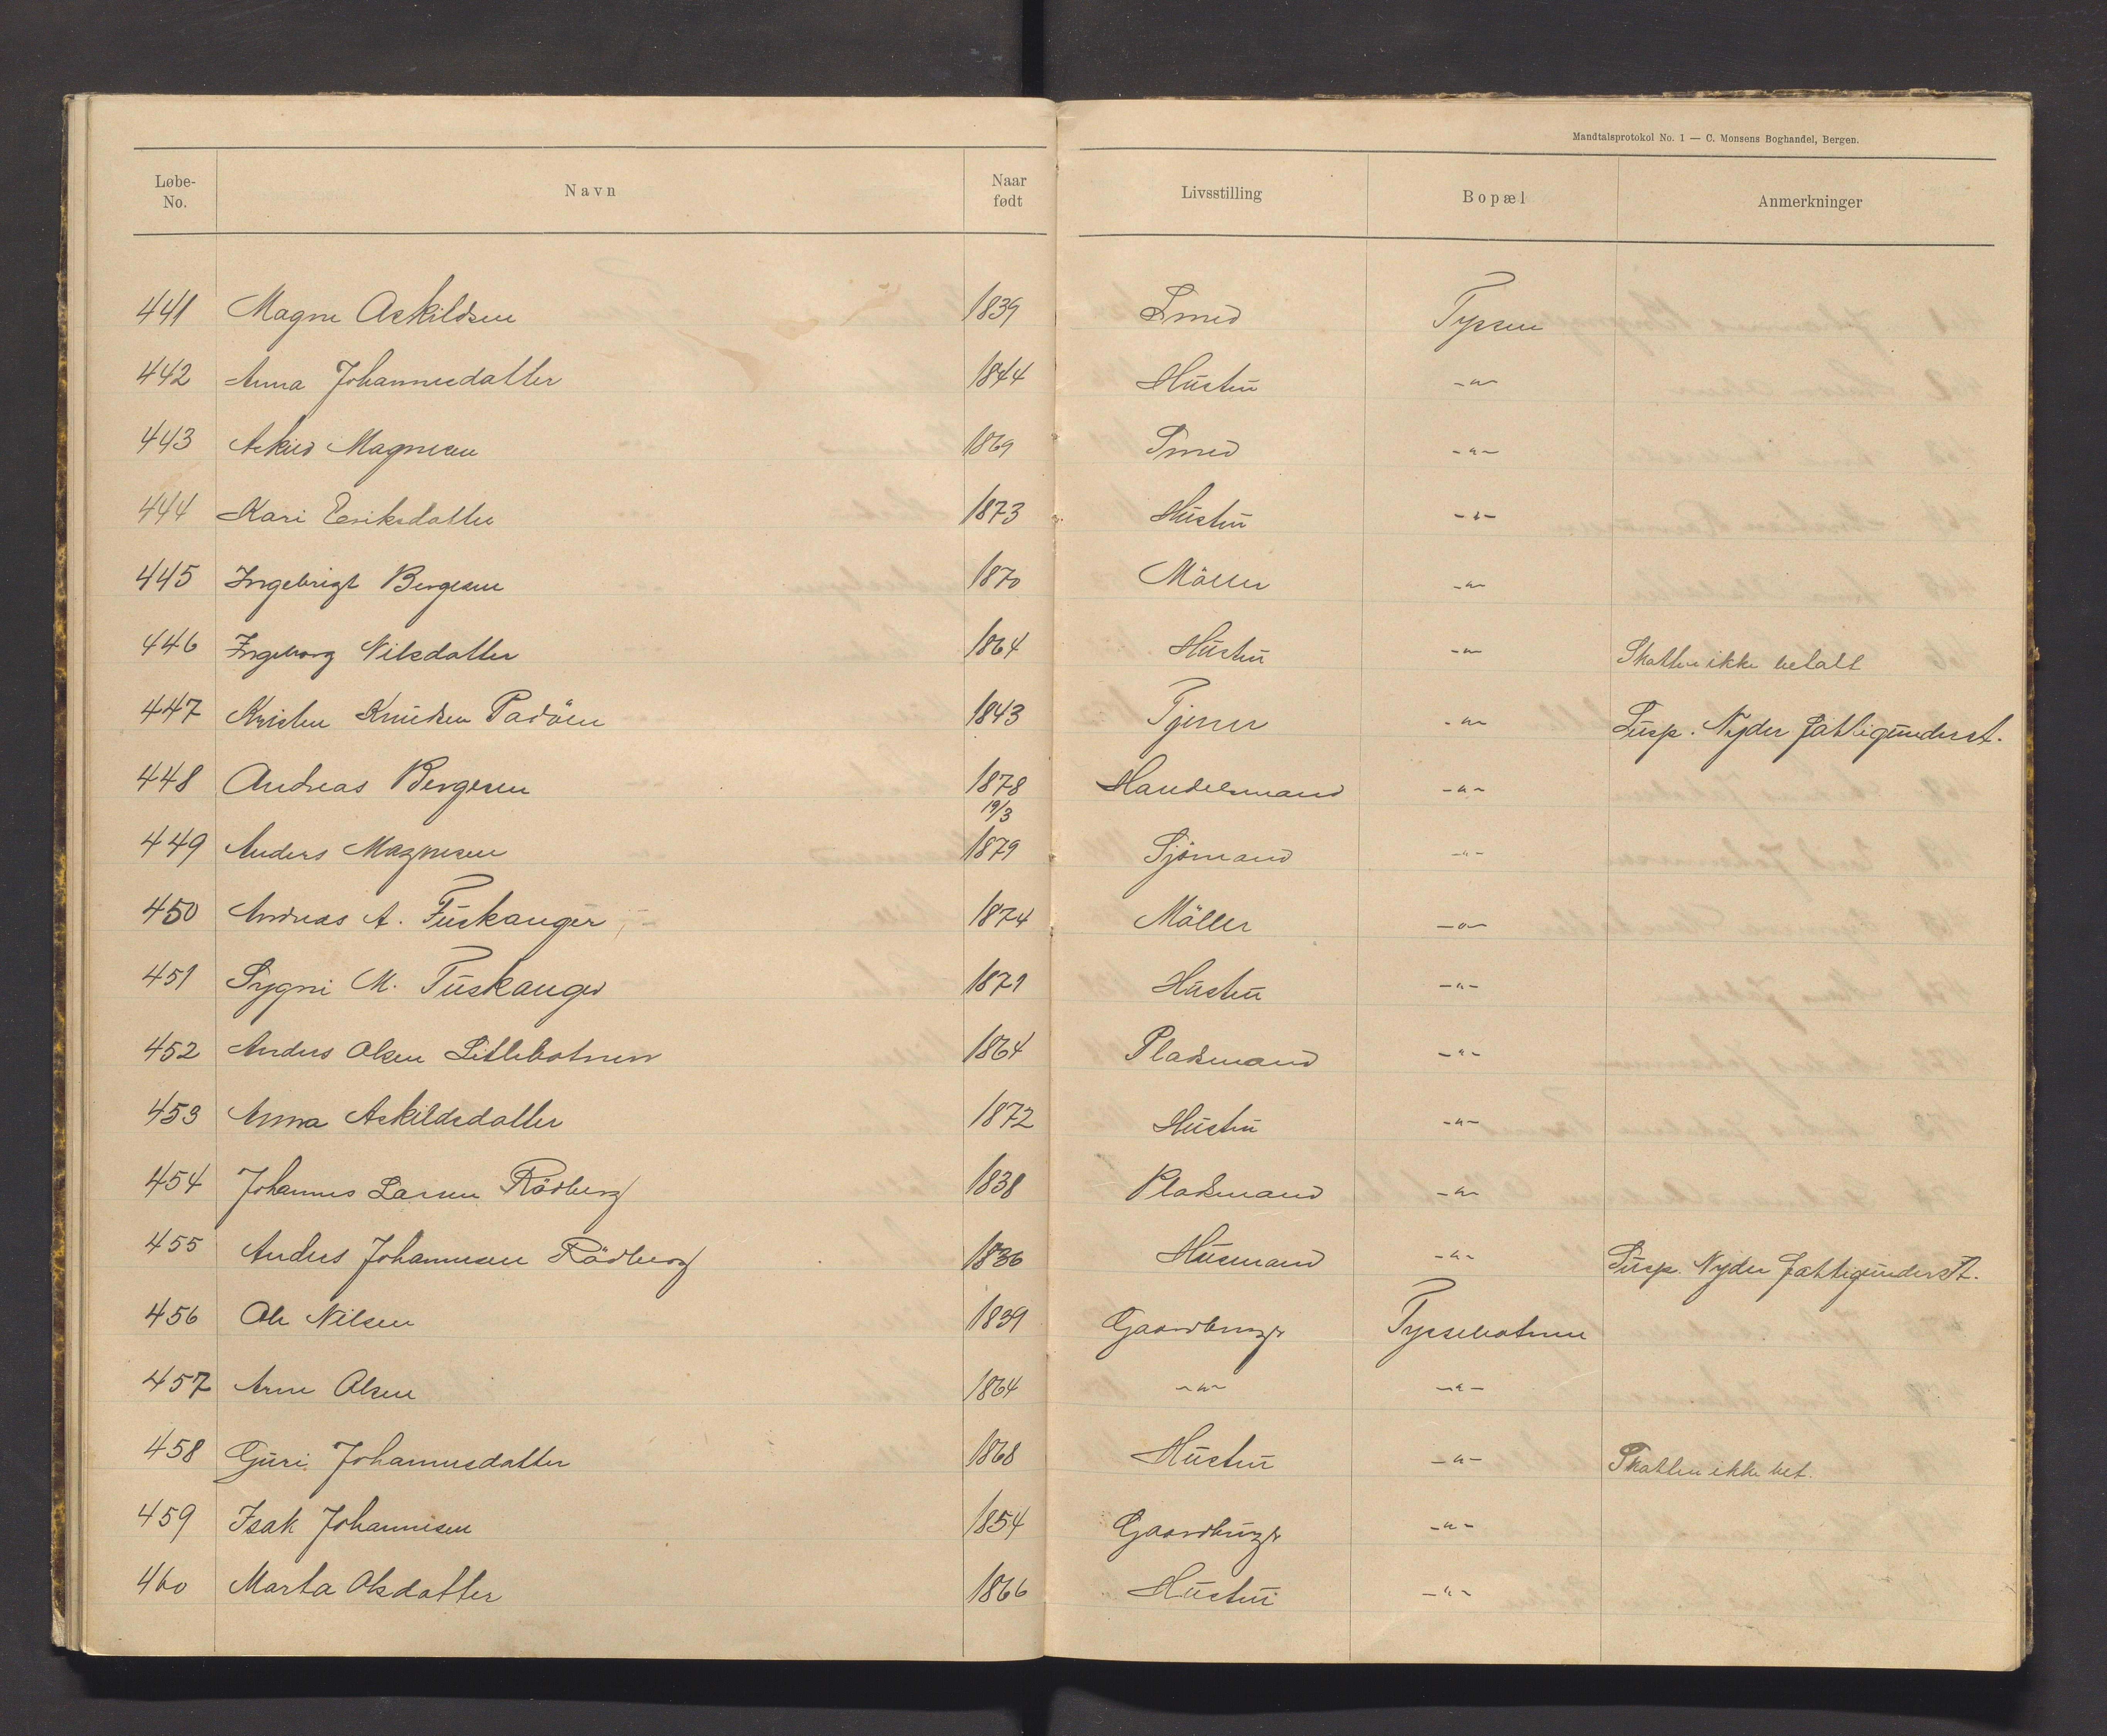 Mandtalsprotokol No. 1 — C. Monsens Boghandel, Bergen.
Løbe-No. Navn Naar født Livsstilling Bopæl Anmerkninger
441 Magne Askildsen 1839 Smed Tyssen
442 Anna Johannesdatter 1844 Hustru -"-
443 Askild Magnesen 1869 Smed -"-
444 Kari Eeriksdatter 1873 Hustru -"-
445 Ingebrigt Bergesen 1870 Möller -"-
446 Ingeborg Nilsdatter 1864 Hustru -"- Skatten ikke betalt
447 Kristen Knudsen Padöen 1843 Tjener -"- Susp. Nyder fattigunderst.
448 Andreas Bergesen 1878 Handelsmand -"-
449 Anders Magnesen 19/3 1879 Sjömand -"-
450 Andreas A. Fuskanger 1874 Möller -"-
451 Sygni M. Fuskanger 1871 Hustru -"-
452 Anders Olsen Litlebotnen 1864 Pladsmand -"-
453 Anna Askildsdatter 1872 Hustru -"-
454 Johannes Larsen Rödberg 1838 Pladsmand -"-
455 Anders Johannesen Rödberg 1836 Husmand -"- Susp. Nyder fattigunderst.
456 Ole Nilsen 1839 Gaardbrugr Tyssebotnen
457 Arne Olsen 1864 -"- -"-
458 Guri Johannesdatter 1868 Hustru -"- Skatten ikke bet.
459 Isak Johannesen 1854 Gaardbrugr -"-
460 Marta Olsdatter 1866 Hustru -"-